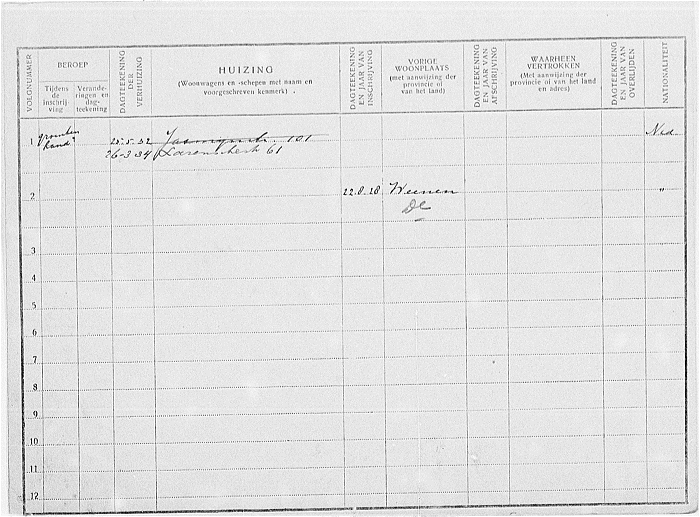 VOLGNUMMER
BEROEP
Tijdens de inschrijving
Veranderingen en dagteekening
DAGTEEKENING DER VERHUIZING
HUIZING
(Woonwagens en -schepen met naam en
voorgeschreven kenmerk).
DAGTEEKENING EN JAAR VAN INSCHRIJVING
VORIGE
WOONPLAATS
(met aanwijzing der
provincie of
van het land)
DAGTEEKENING EN JAAR VAN AFSCHRIJVING
WAARHEEN
VERTROKKEN
(Met aanwijzing der
provincie of van het land
en adres)
DAGTEEKENING EN JAAR VAN OVERLIJDEN
NATIONALITEIT
1 groenten 25.5.32 101 Ned.
hand 26-3-34 61
2 22.8.28 Weenen "
De
3
4
5
6
7
8
9
10
11
12